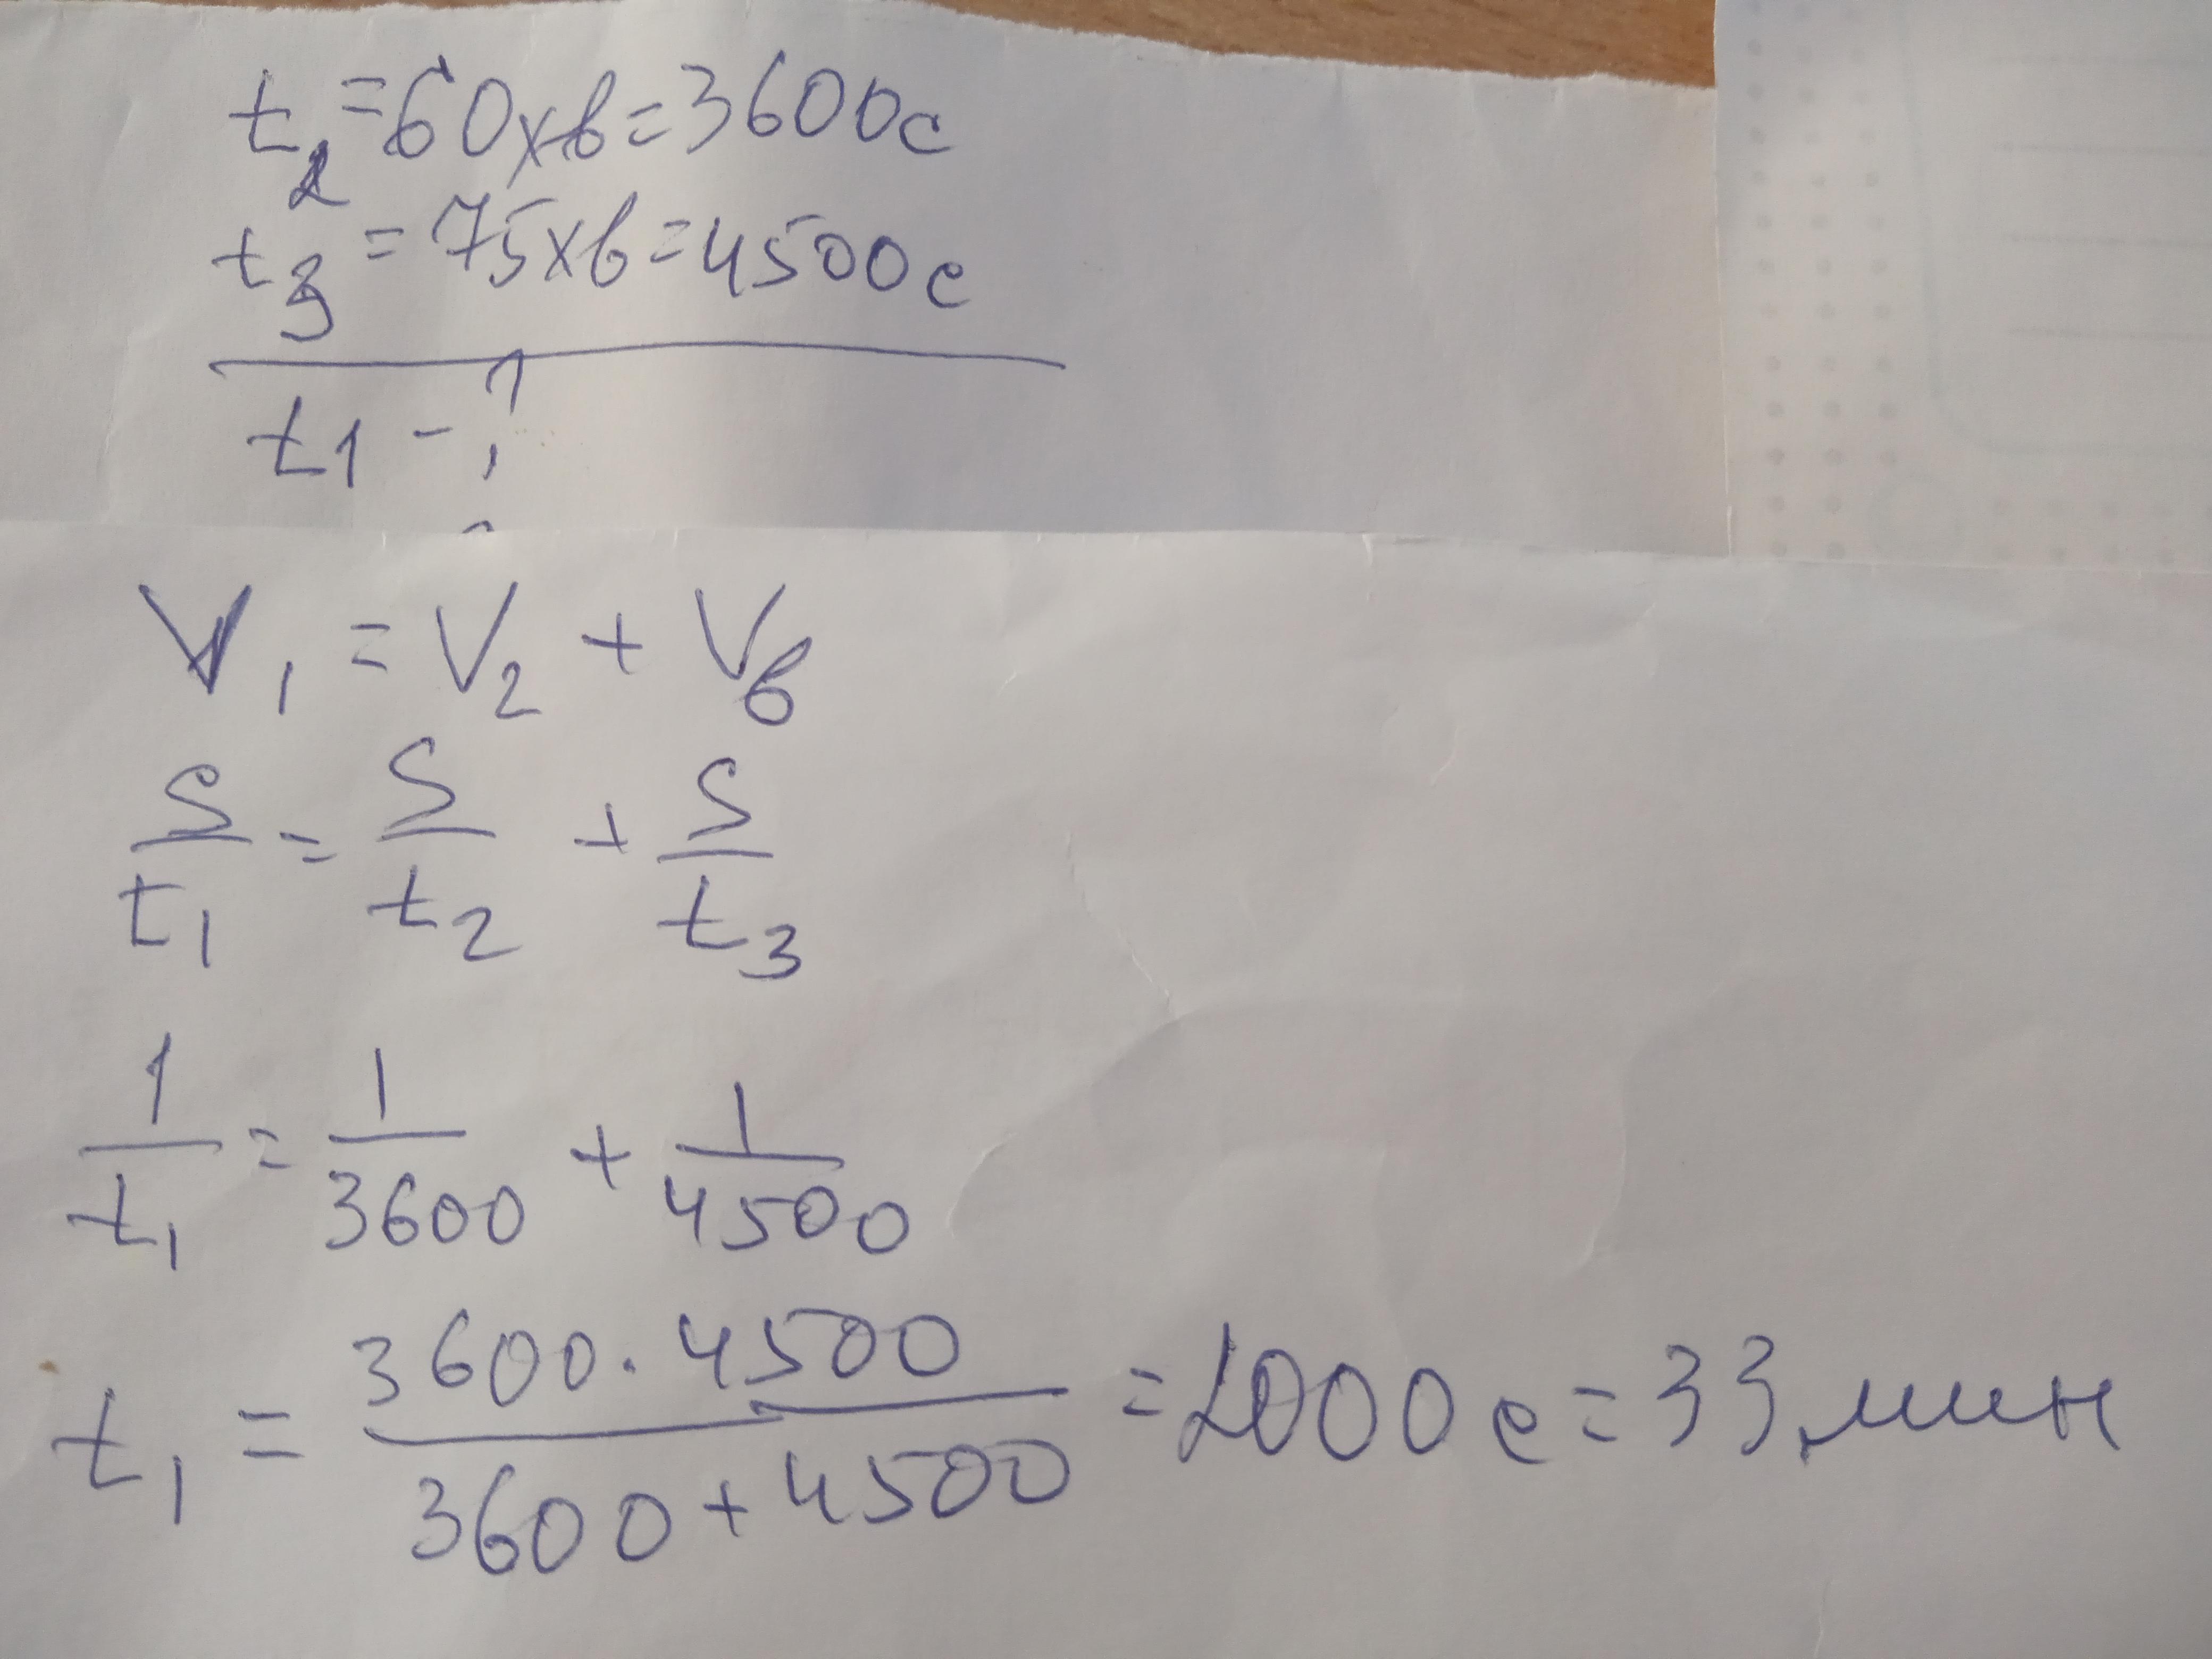 t₂ = 60хв = 3600с
t₃ = 75хв = 4500с
t1 - ?
V₁ = V₂ + Vв
S/t₁ = S/t₂ + S/t₃
1/t₁ = 1/3600 + 1/4500
t₁ = 3600·4500/3600+4500 = 2000с = 33 мин